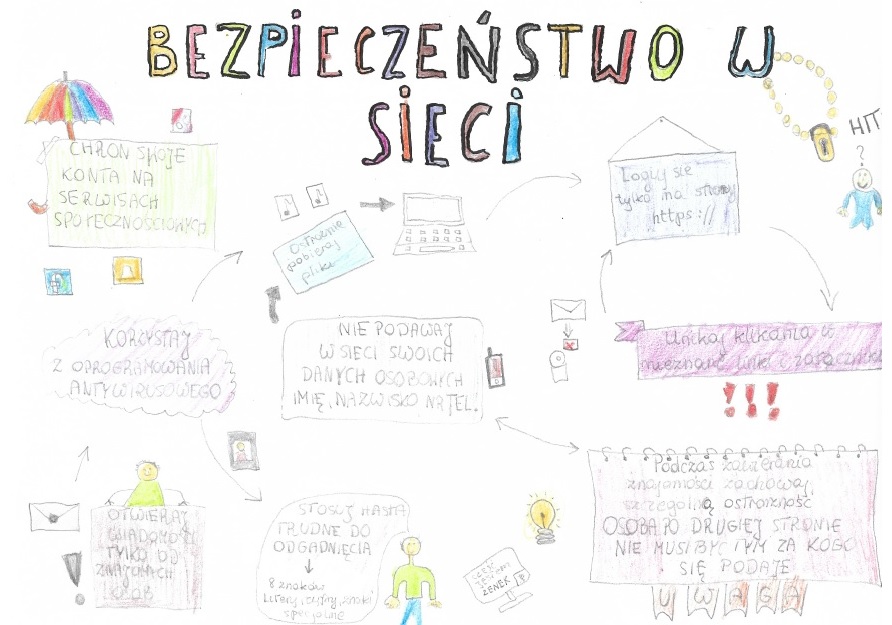 BEZPIECZEŃSTWO W
SIECI
CHROŃ SWOJE
KONTA NA
SERWISACH
SPOŁECZNOŚCIOWYCH
Ostrożnie
pobieraj
pliki
Loguj się
tylko na strony
https://
HIT
?
KORZYSTAJ
Z OPROGRAMOWANIA
ANTYWIRUSOWEGO
NIE PODAWAJ
W SIECI SWOICH
DANYCH OSOBOWYCH
IMIĘ, NAZWISKO NR TEL.
Unikaj klikania w
nieznane linki i załączniki
!!!
OTWIERAJ
WIADOMOŚCI
TYLKO OD
ZNAJOMYCH
OSÓB
!
STOSUJ HASŁA
TRUDNE DO
ODGADNIĘCIA
8 znaków
litery, cyfry, znaki
specjalne
ZENEK
Podczas zawierania
znajomości zachowaj
szczególną ostrożność
OSOBA PO DRUGIEJ STRONIE
NIE MUSI BYĆ TYM ZA KOGO
SIĘ PODAJE
UWAGA